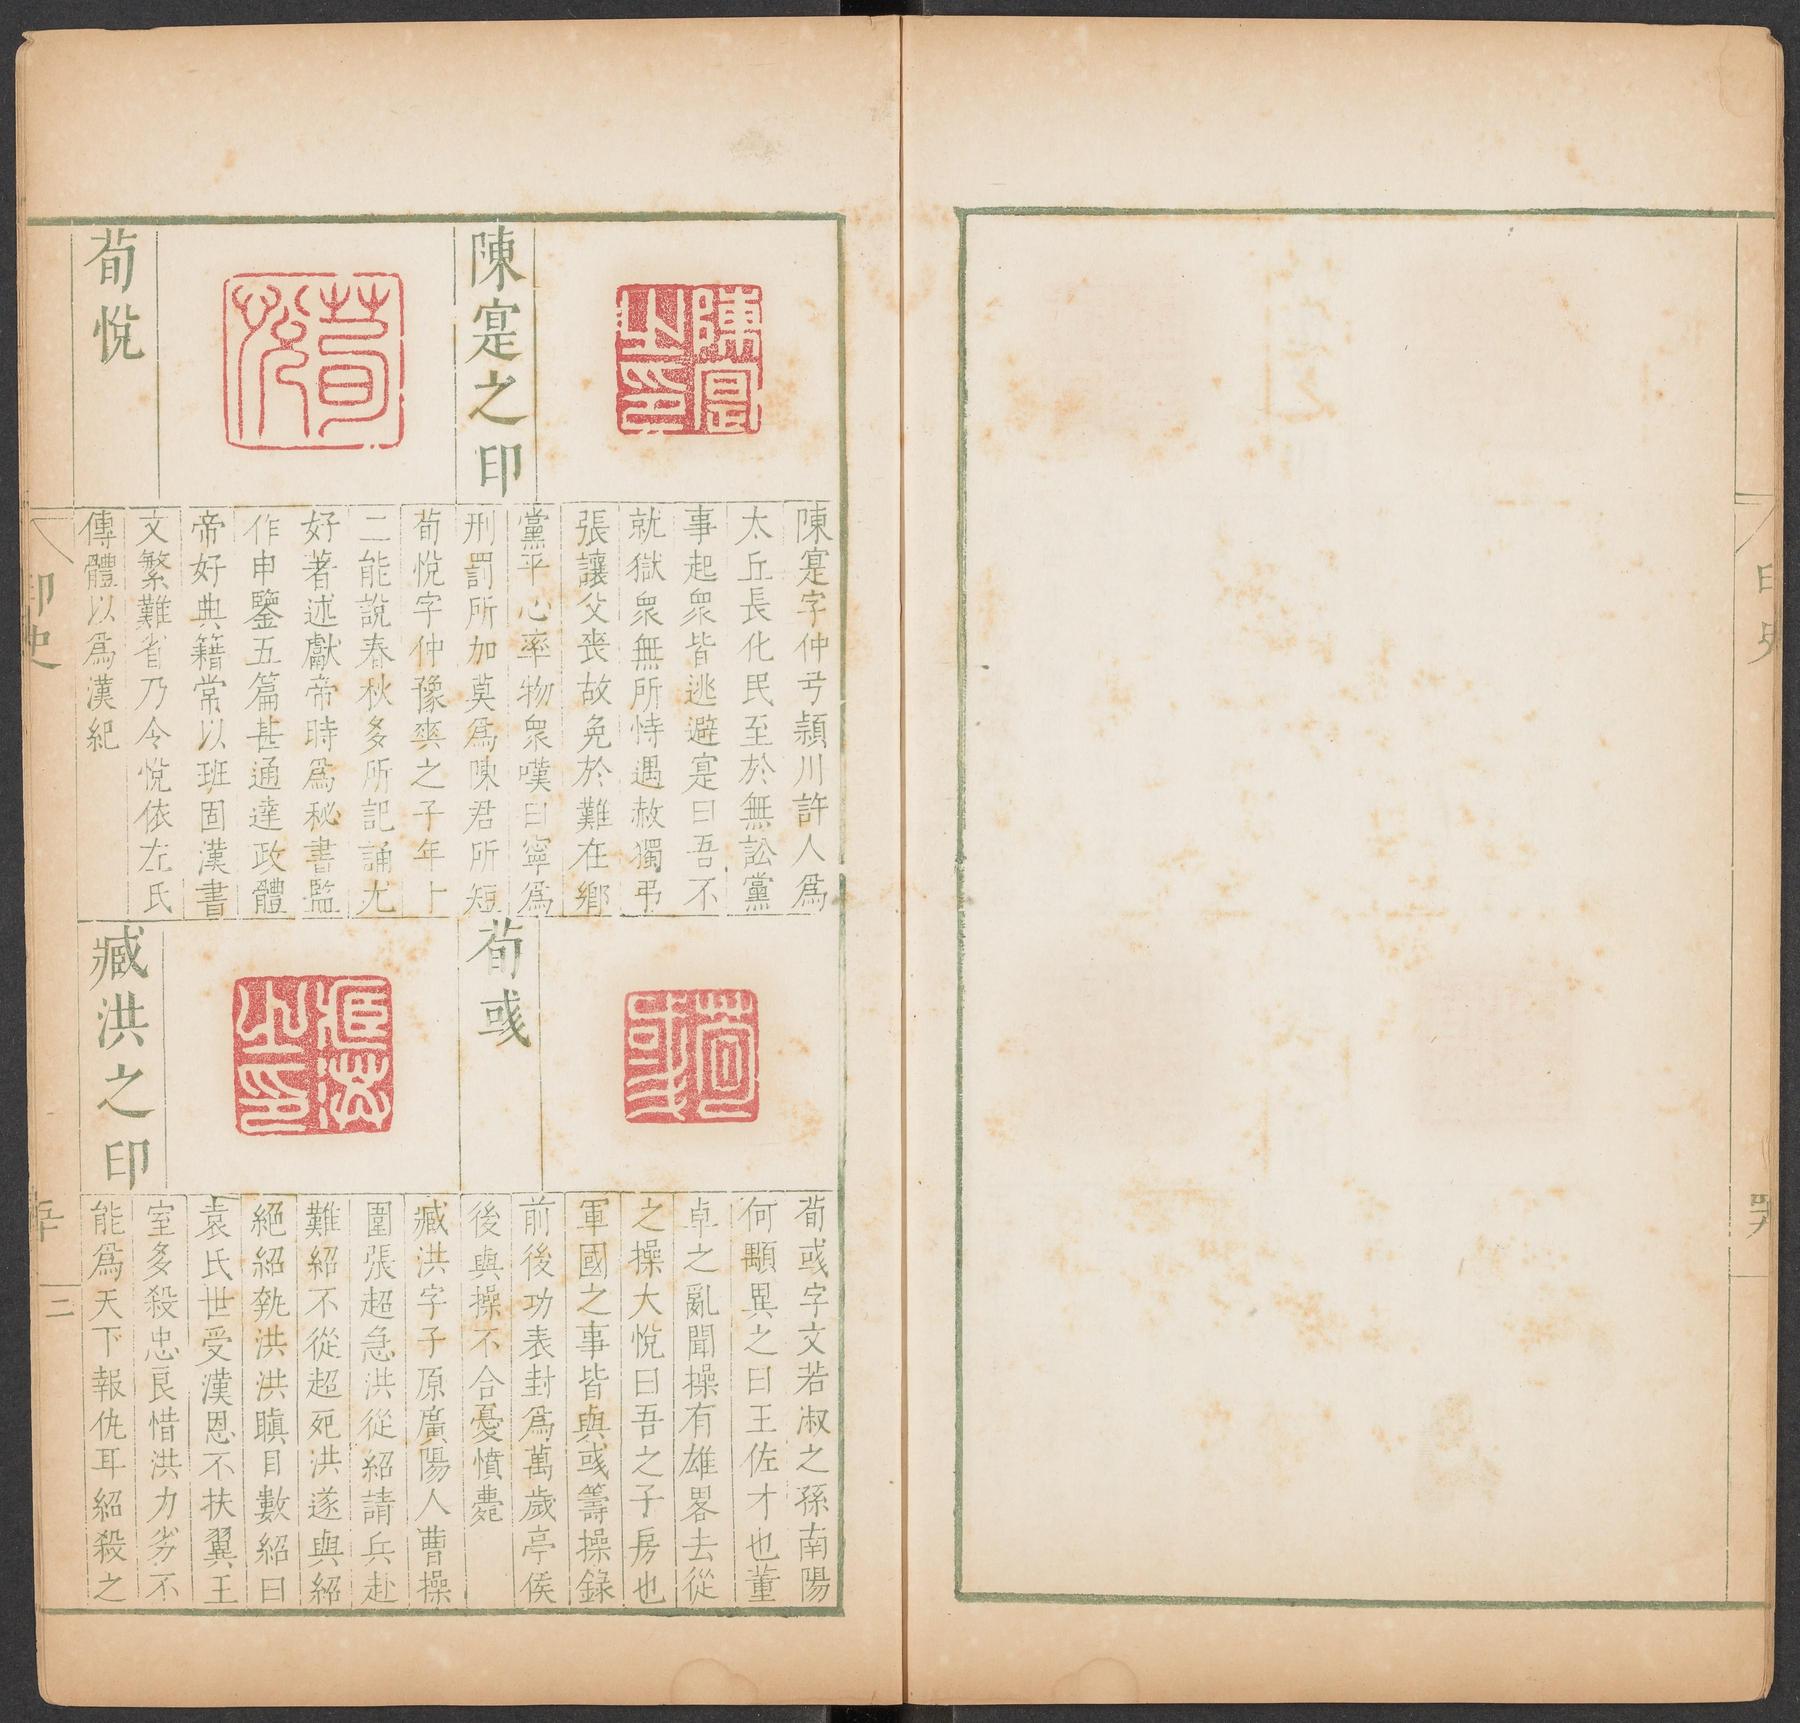 印史
陳寔之印
陳寔之印
陳寔字仲弓潁川許人爲
太丘長化民至於無訟黨
事起衆皆逃避寔曰吾不
就獄衆無所恃遇赦獨弔
張讓父喪故免於難在鄉
黨平心率物衆嘆曰寧爲
刑罰所加莫爲陳君所短
荀悅
荀悅
荀悅字仲豫爽之子年十
二能說春秋多所記誦尤
好著述獻帝時爲秘書監
作申鑒五篇甚通達政體
帝好典籍常以班固漢書
文繁難省乃令悅依左氏
傳體以爲漢紀
荀彧
荀彧
荀彧字文若淑之孫南陽
何顒異之曰王佐才也董
卓之亂聞操有雄畧去從
之操大悅曰吾之子房也
軍國之事皆與彧籌操錄
前後功表封爲萬歲亭侯
後與操不合憂憤薨
臧洪之印
臧洪之印
臧洪字子原廣陽人曹操
圍張超急洪從紹請兵赴
難紹不從超死洪遂與紹
絕紹執洪洪瞋目數紹曰
袁氏世受漢恩不扶翼王
室多殺忠良惜洪力劣不
能爲天下報仇耳紹殺之
印史